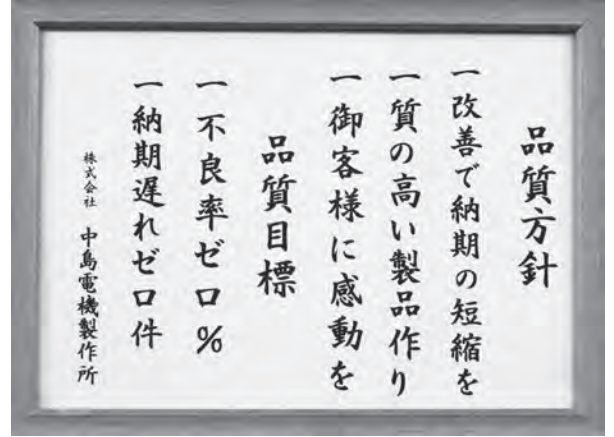 品質方針
一改善で納期の短縮を
一質の高い製品作り
一御客様に感動を
品質目標
一不良率ゼロ%
一納期遅れゼロ件
株式会社 中島電機製作所